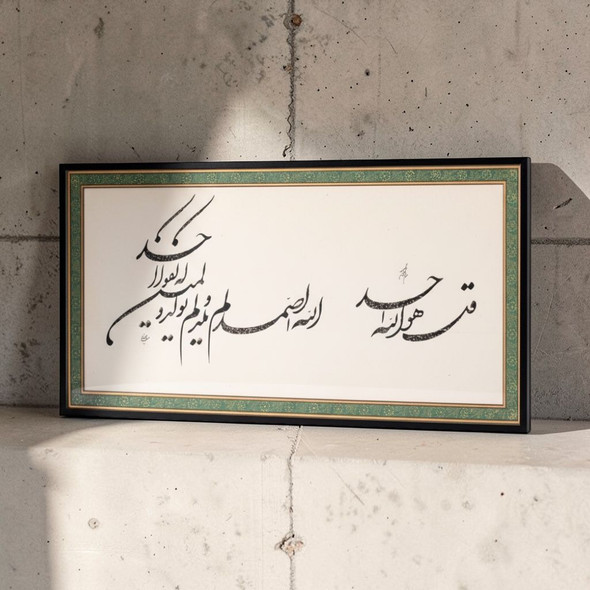 قل هو الله احد
الله الصمد لم یلد و لم یولد و
لم یکن له کفوا احد